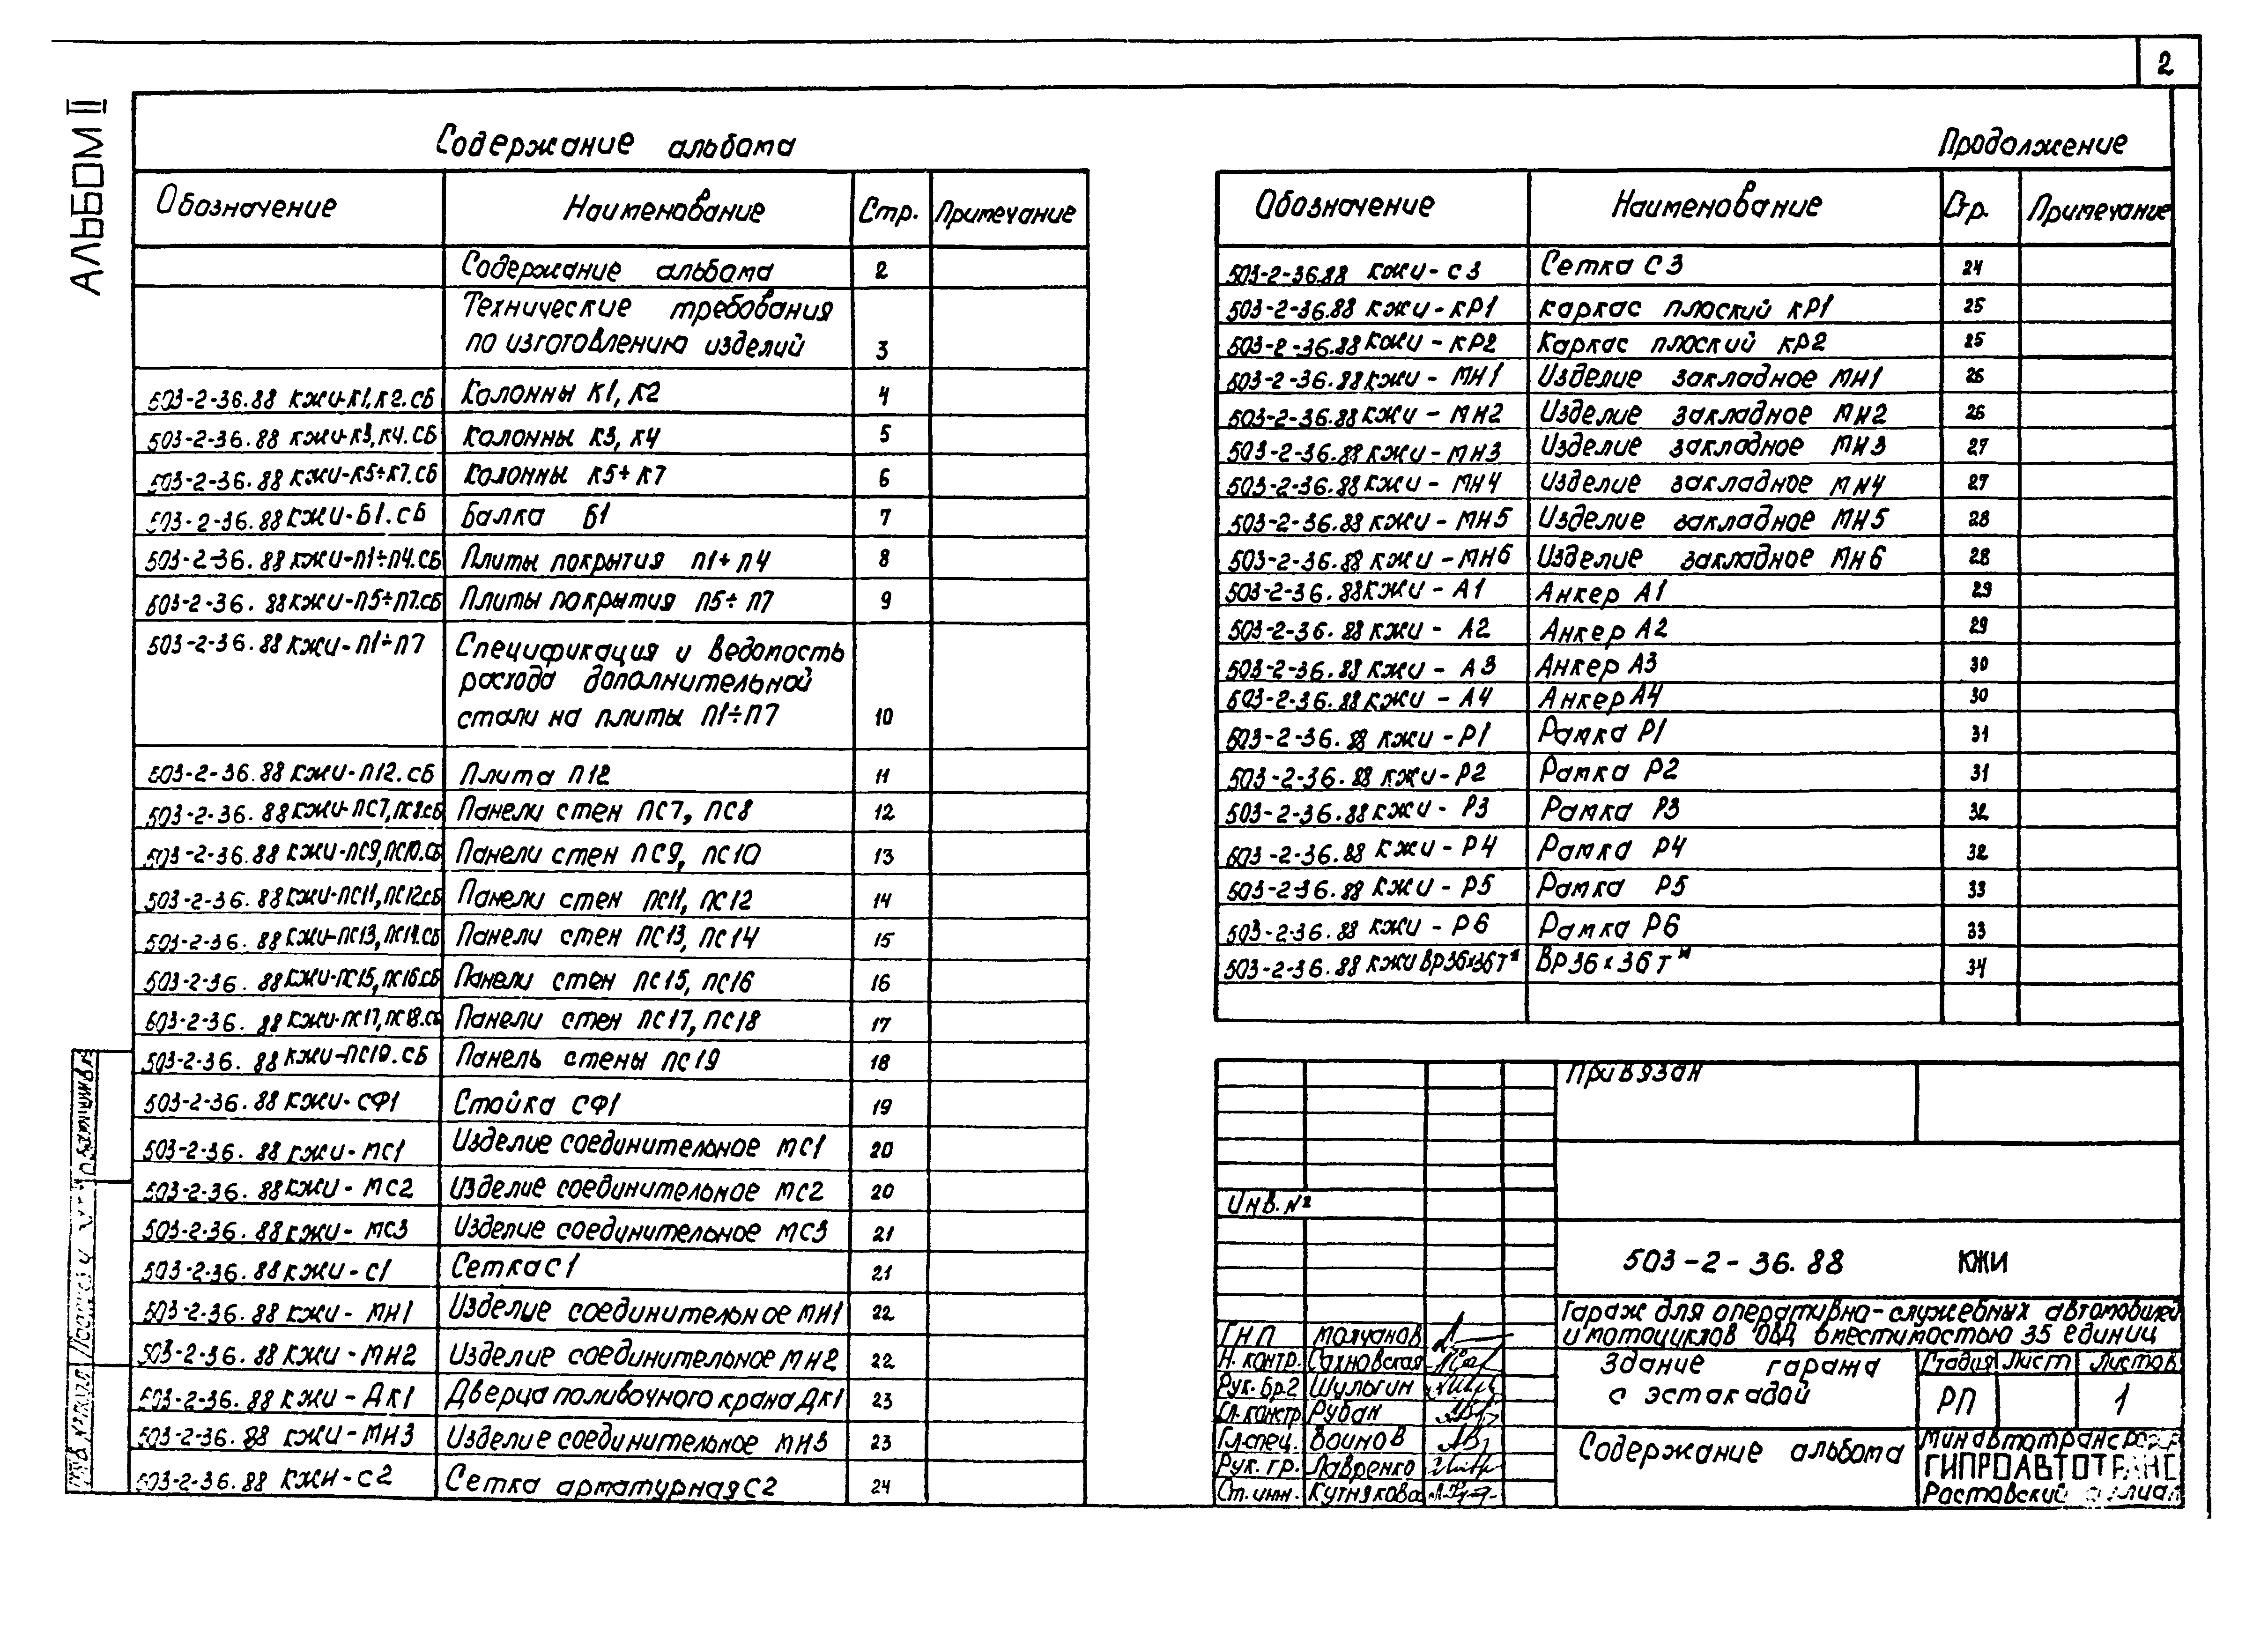 2
АЛЬБОМ II
Содержание альбома
Обозначение Наименование Стр. Примечание
Содержание альбома 2
Технические требования
по изготовлению изделий 3
503-2-36.88 КЖИ-К1,К2.СБ Колонны К1, К2 4
503-2-36.88 КЖИ-К3,К4.СБ Колонны К3, К4 5
503-2-36.88 КЖИ-К5÷К7.СБ Колонны К5÷К7 6
503-2-36.88 КЖИ-Б1.СБ Балка Б1 7
503-2-36.88 КЖИ-П1÷П4.СБ Плиты покрытия П1÷П4 8
503-2-36.88 КЖИ-П5÷П7.СБ Плиты покрытия П5÷П7 9
503-2-36.88 КЖИ-П1÷П7 Спецификация и ведомость
расхода дополнительной
стали на плиты П1÷П7 10
503-2-36.88 КЖИ-П12.СБ Плита П12 11
503-2-36.88 КЖИ-ПС7,ПС8.СБ Панели стен ПС7, ПС8 12
503-2-36.88 КЖИ-ПС9,ПС10.СБ Панели стен ПС9, ПС10 13
503-2-36.88 КЖИ-ПС11,ПС12.СБ Панели стен ПС11, ПС12 14
503-2-36.88 КЖИ-ПС13,ПС14.СБ Панели стен ПС13, ПС14 15
503-2-36.88 КЖИ-ПС15,ПС16.СБ Панели стен ПС15, ПС16 16
503-2-36.88 КЖИ-ПС17,ПС18.СБ Панели стен ПС17, ПС18 17
503-2-36.88 КЖИ-ПС19.СБ Панель стены ПС19 18
503-2-36.88 КЖИ-СФ1 Стойка СФ1 19
503-2-36.88 КЖИ-МС1 Изделие соединительное МС1 20
503-2-36.88 КЖИ-МС2 Изделие соединительное МС2 20
503-2-36.88 КЖИ-МС3 Изделие соединительное МС3 21
503-2-36.88 КЖИ-С1 Сетка С1 21
503-2-36.88 КЖИ-МН1 Изделие соединительное МН1 22
503-2-36.88 КЖИ-МН2 Изделие соединительное МН2 22
503-2-36.88 КЖИ-ДК1 Дверца поливочного крана ДК1 23
503-2-36.88 КЖИ-МН3 Изделие соединительное МН3 23
503-2-36.88 КЖИ-С2 Сетка арматурная С2 24
Продолжение
Обозначение Наименование Стр. Примечание
503-2-36.88 КЖИ-С3 Сетка С3 24
503-2-36.88 КЖИ-КР1 Каркас плоский КР1 25
503-2-36.88 КЖИ-КР2 Каркас плоский КР2 25
503-2-36.88 КЖИ-МН1 Изделие закладное МН1 26
503-2-36.88 КЖИ-МН2 Изделие закладное МН2 26
503-2-36.88 КЖИ-МН3 Изделие закладное МН3 27
503-2-36.88 КЖИ-МН4 Изделие закладное МН4 27
503-2-36.88 КЖИ-МН5 Изделие закладное МН5 28
503-2-36.88 КЖИ-МН6 Изделие закладное МН6 28
503-2-36.88 КЖИ-А1 Анкер А1 29
503-2-36.88 КЖИ-А2 Анкер А2 29
503-2-36.88 КЖИ-А3 Анкер А3 30
503-2-36.88 КЖИ-А4 Анкер А4 30
503-2-36.88 КЖИ-Р1 Рамка Р1 31
503-2-36.88 КЖИ-Р2 Рамка Р2 31
503-2-36.88 КЖИ-Р3 Рамка Р3 32
503-2-36.88 КЖИ-Р4 Рамка Р4 32
503-2-36.88 КЖИ-Р5 Рамка Р5 33
503-2-36.88 КЖИ-Р6 Рамка Р6 33
503-2-36.88 КЖИ ВР36х36Тᴵ ВР36х36Тᴵ 34
Привязан
Инв.№
503-2-36.88 КЖИ
Гараж для оперативно-служебных автомобилей
и мотоциклов ОВД вместимостью 35 единиц
ГИП Молчанов
Н. контр. Сахновская
Рук. бр.2 Шулогин
Гл. констр Рубан
Гл.спец. Воинов
Рук. гр. Лавренко
Ст. инж. Кутнякова
Здание гаража
с эстакадой
Стадия Лист Листов
РП 1
Содержание альбома
Минавтотранс РСФСР
ГИПРОАВТОТРАНС
Ростовский филиал